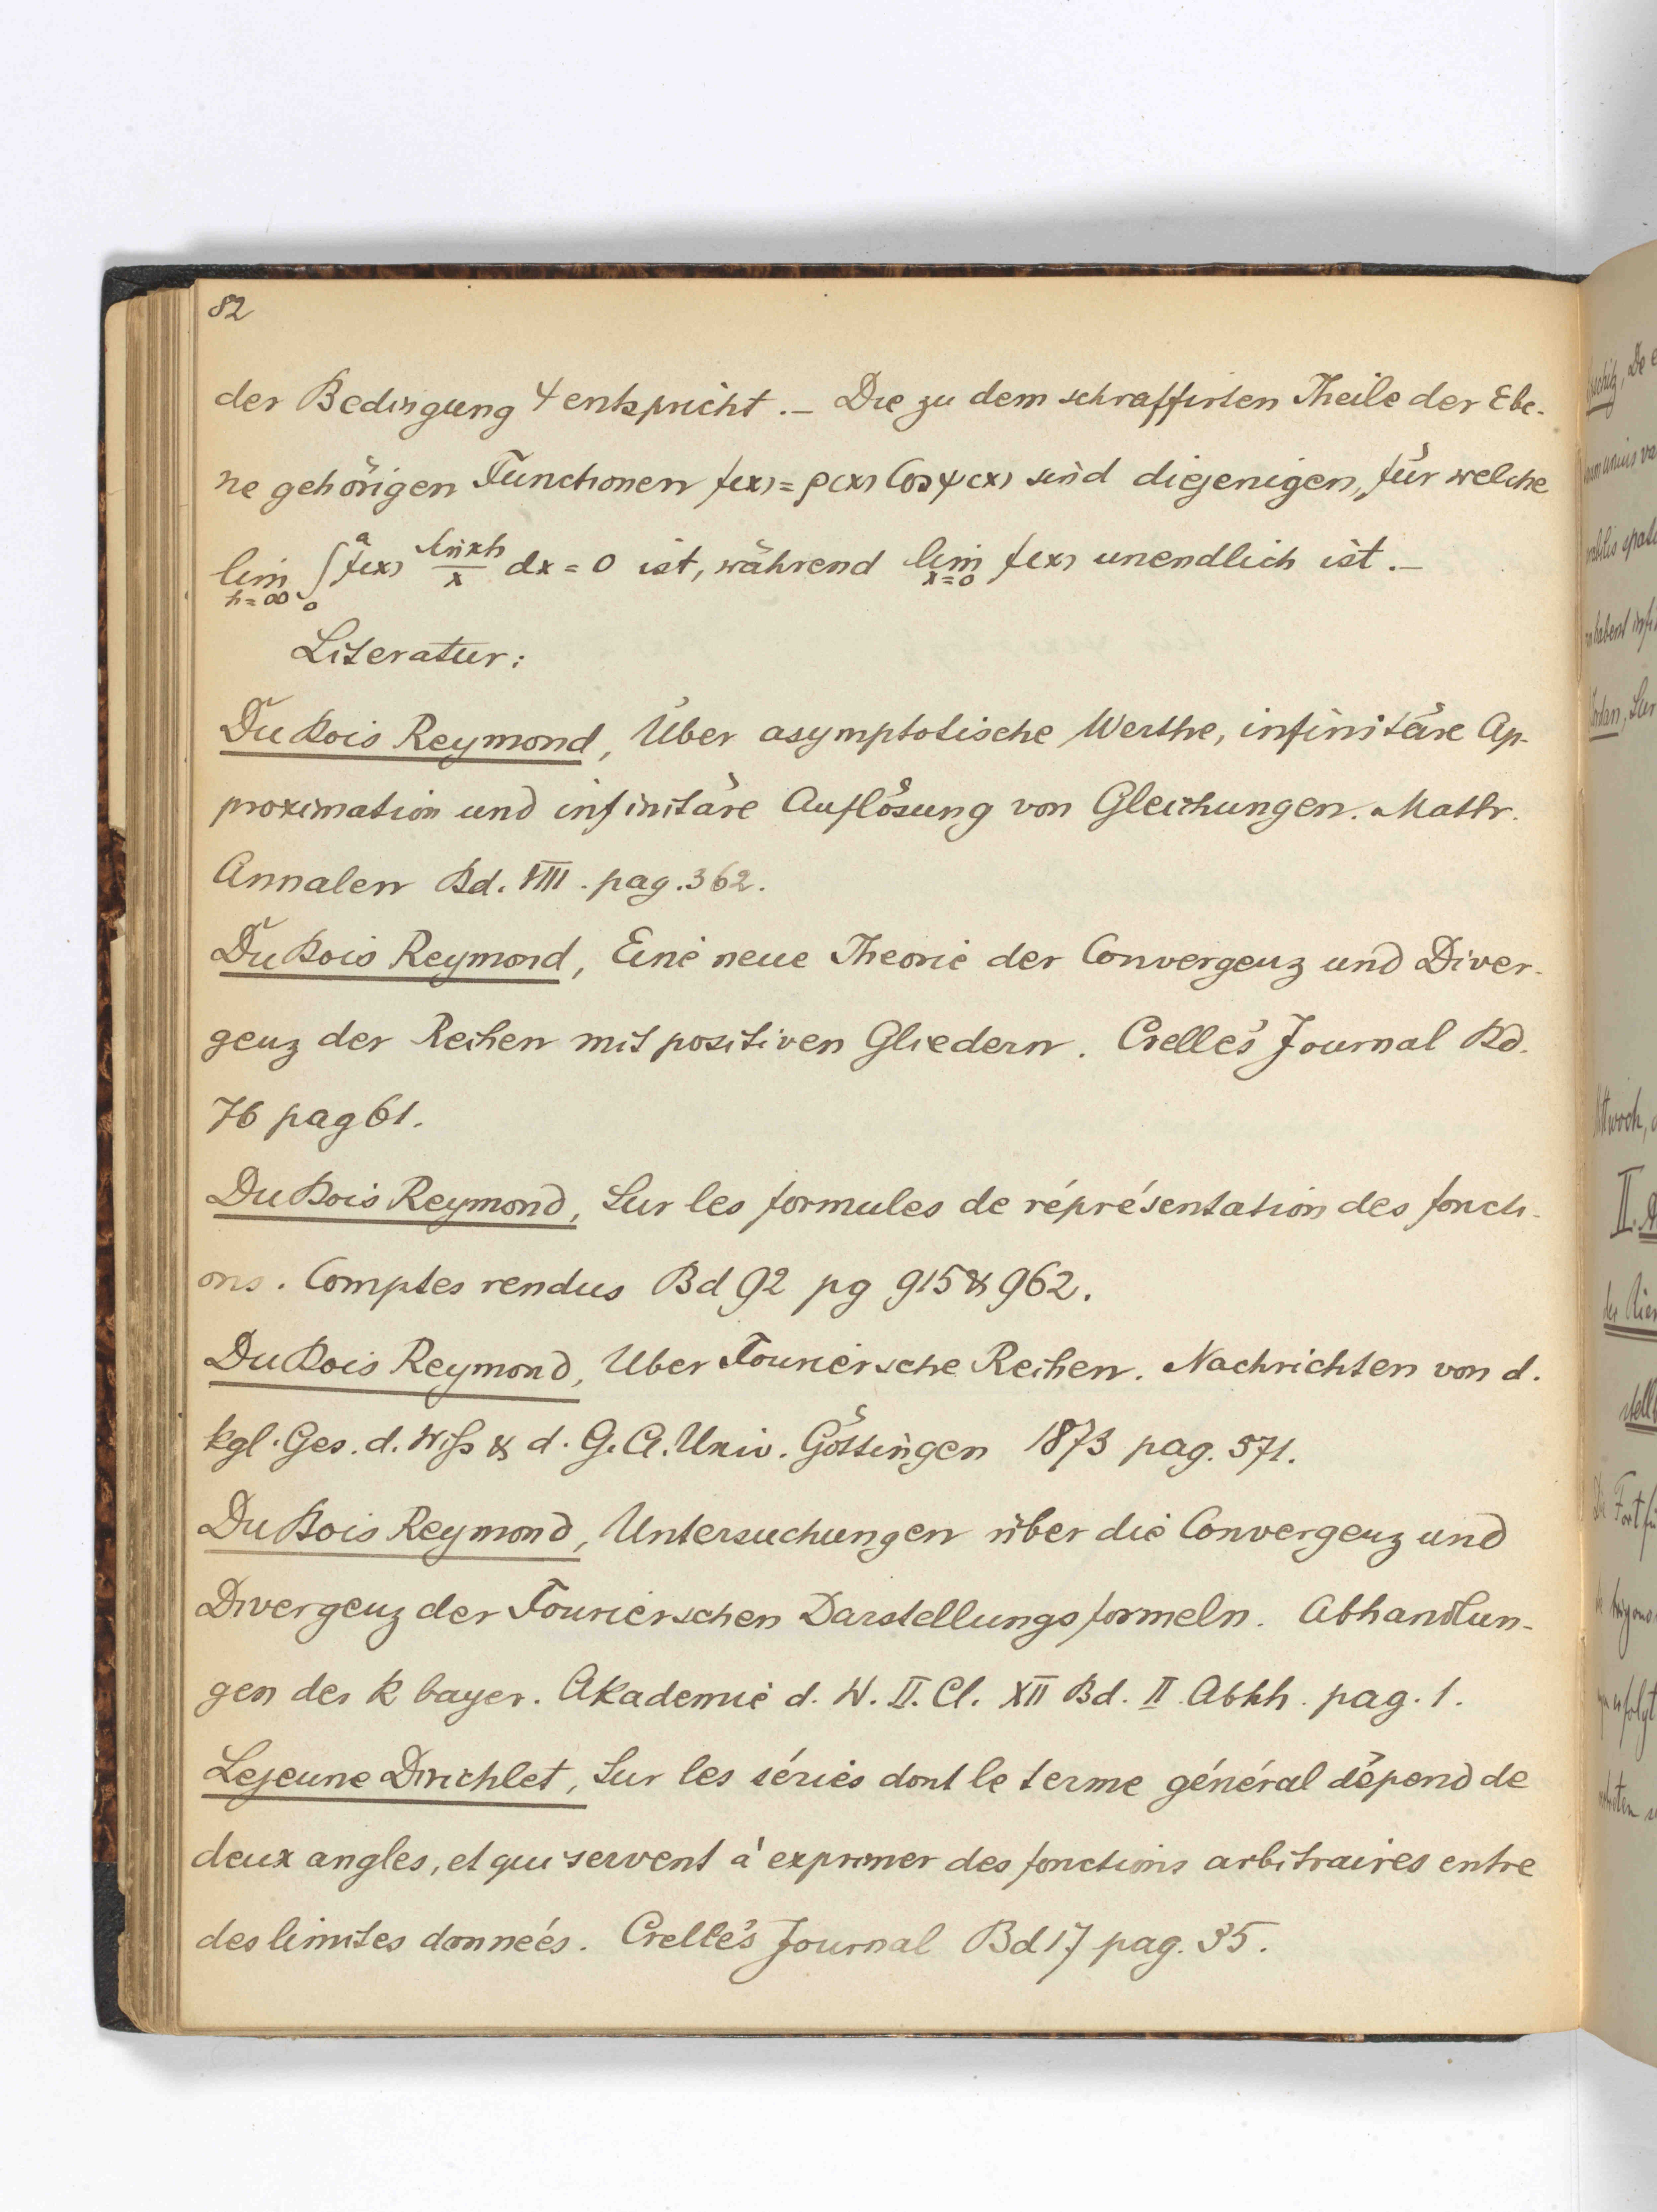 82
der Bedingung 4 entspricht. – Die zu dem schraffirten Theile der Ebe-
ne gehörigen Functionen f(x) = ρ(x) Cos ψ(x) sind diejenigen, für welche
lim h=∞ ∫₀ᵃ f(x) sin xh / x dx = 0 ist, während lim x=0 f(x) unendlich ist. –
Literatur:
Du Bois Reymond, Über asymptotische Werthe, infinitäre Ap-
proximation und infinitäre Auflösung von Gleichungen. Math.
Annalen Bd. VIII. pag. 362.
Du Bois Reymond, Eine neue Theorie der Convergenz und Diver-
genz der Reihen mit positiven Gliedern. Crelle's Journal Bd.
76 pag 61.
Du Bois Reymond, Sur les formules de réprésentation des foncti-
ons. Comptes rendus Bd 92 pg 915 & 962.
Du Bois Reymond, Uber Fourier'sche Reihen. Nachrichten von d.
kgl. Ges. d. Wiß & d. G. A. Univ. Göttingen 1873 pag. 571.
Du Bois Reymond, Untersuchungen über die Convergenz und
Divergenz der Fourierschen Darstellungsformeln. Abhandlun-
gen der k bayer. Akademie d. W. II. Cl. XII Bd. II Abhh. pag. 1.
Lejeune Dirichlet, Sur les séries dont le terme général dépend de
deux angles, et qui servent à exprimer des fonctions arbitraires entre
des limites données. Crelle's Journal Bd 17 pag. 35.